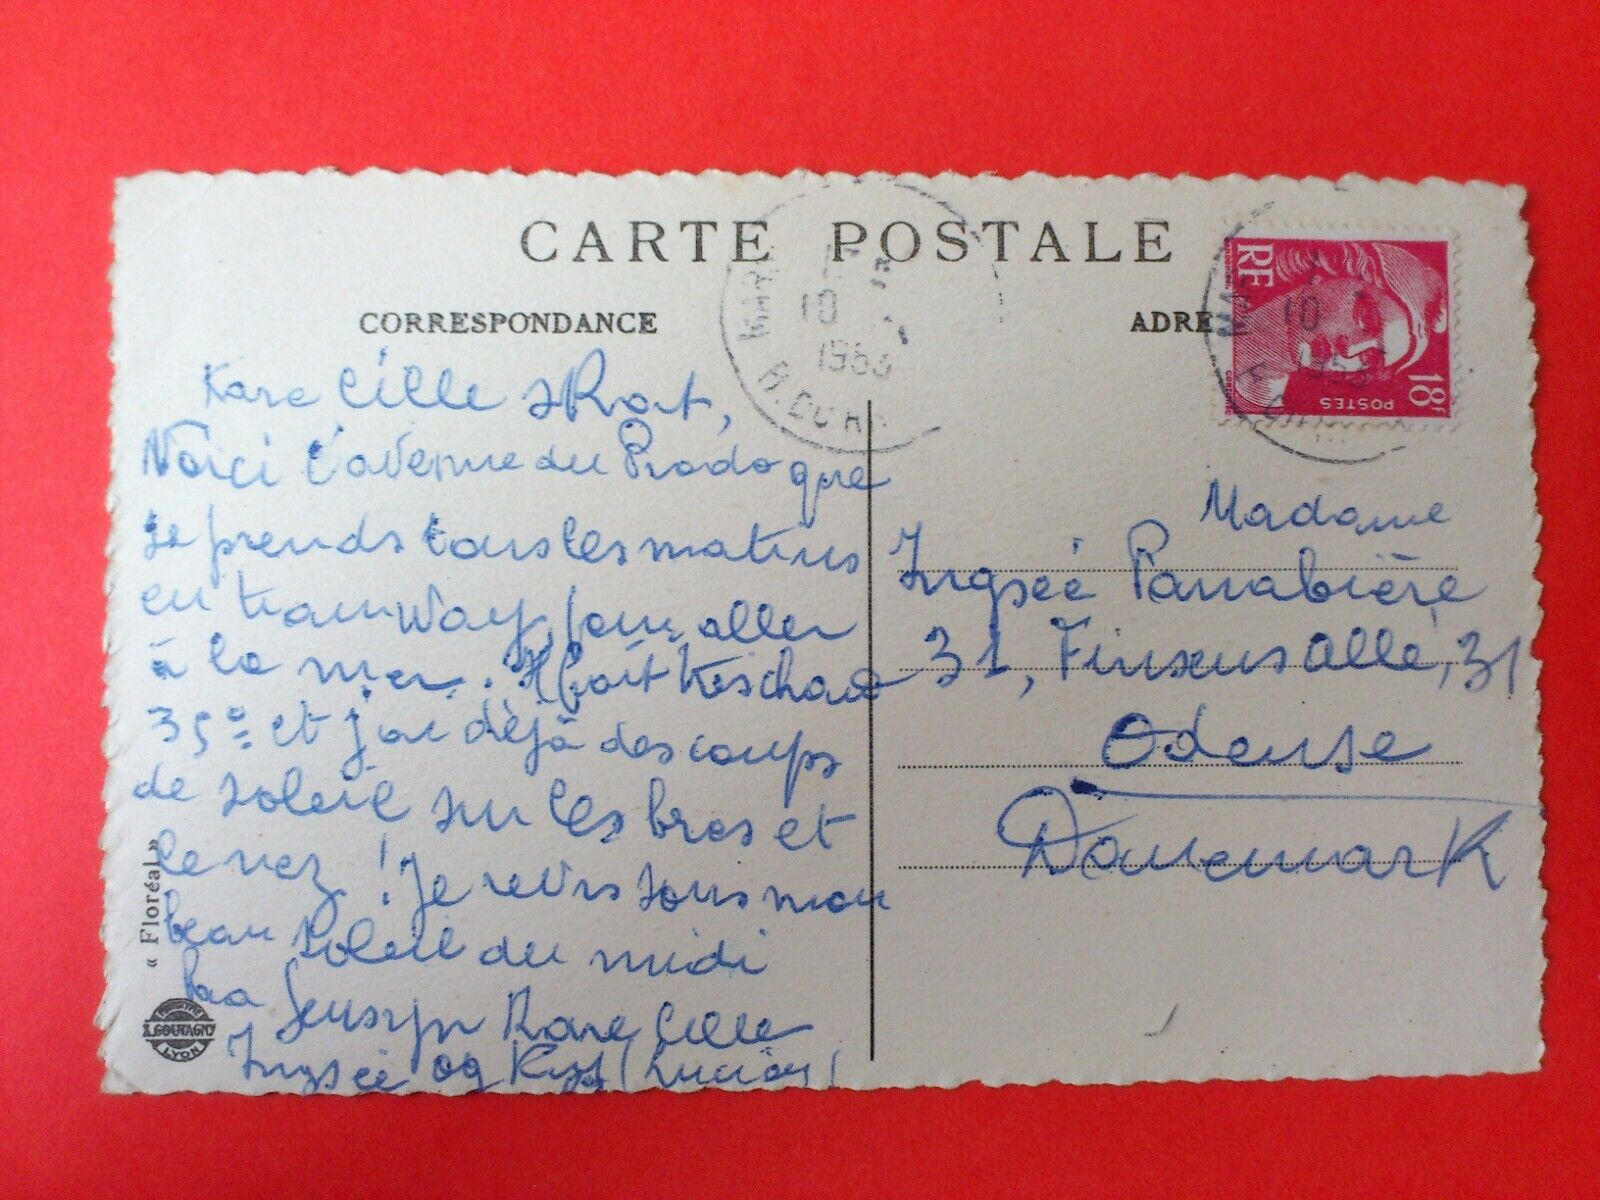 CARTE POSTALE
CORRESPONDANCE
ADRE
RF
POSTES
18F
10
1953
R. DU
10
1953
Kare Lille skat,
Voici l'avenue du Prado que
je prends tous les matins
en tramway, pour aller
à la mer. Il fait très chaud
35° et j'ai déjà des coups
de soleil sur les bras et
le nez ! Je revis sous mon
beau soleil du midi
Paa Gensyn Kare Lille
Ingsée og Kys (Lucien)
Madame
Ingsée Parrabière
31, Finsens Allé, 31
Odense
Danemark
« Floréal »
X. GOUTAGNY
LYON